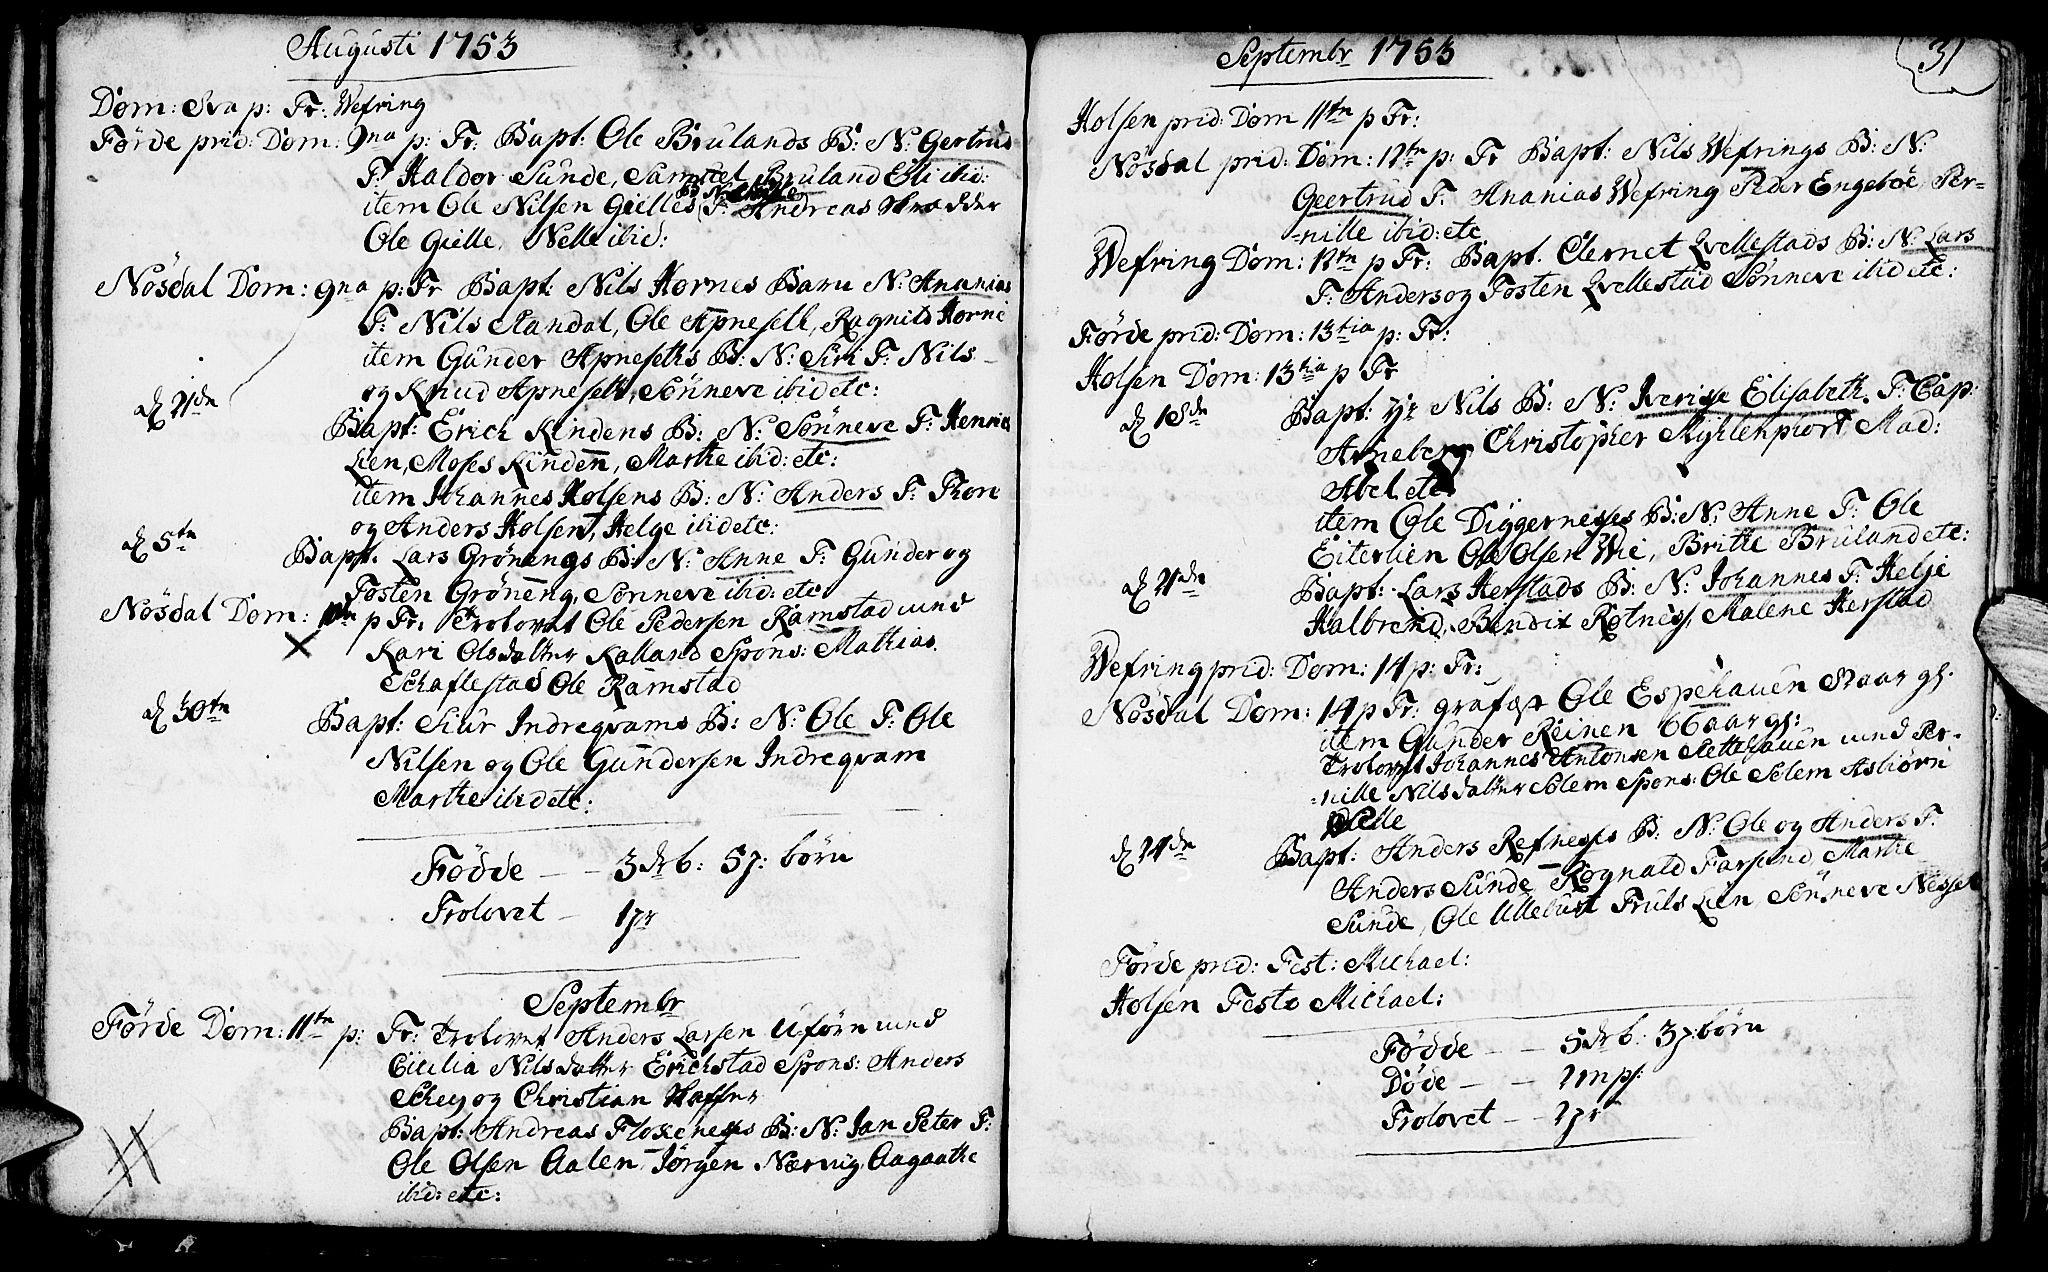 Augusti 1753
Dom: 8va p: Tr: Wefring
Förde prid: Dom: 9na p: Tr: Bapt: Ole Brulands B: N: Gertrud
T: Haldor Sunde, Samuel Bruland Eli ibid:
item Ole Nilsen Gielles B: N: T: Andreas Skrædder
Ole Gielle, Nelle ibid:
Nösdal Dom: 9na p: Tr Bapt: Nils Hornes Barn N: Ananias
T: Nils Standal, Ole Apneseth, Ragnild Horne
item Gunder Apneseths B: N: Siri T: Nils
og Knud Apneseth, Sönneve ibid etc:
d 21de
Bapt: Erich Kindens B: N: Sönneve T: Henric
Lien, Moses Kinden, Marthe ibid: etc:
item Johannes Holsens B: N: Anders T: Thore
og Anders Holsen, Helge ibid etc:
d 5te
Bapt. Lars Grönengs B: N: Anne T: Gunder og
Tosten Gröneng, Sönneve ibid: etc
Nösdal Dom: p Tr: Trolovet Ole Pedersen Ramstad med
Kari Olsdatter Kalland Spons: Mathias
Schaflestad Ole Ramstad
d 30te
Bapt: Siur Indreqvams B: N: Ole T: Ole
Nilsen og Ole Gundersen Indreqvam
Marthe ibid etc:
Födde - - 3 drb: 5 p: börn
Trolovet - 1 pr
Septembr
Förde Dom: 11te p: Tr: Trolovet Anders Larsen Uförn med
Cicilia Nilsdatter Erichstad Spons: Anders
Schey og Christian Haffner
Bapt: Andreas Floxenes B: N: Jan Peter T:
Ole Olsen Aalen Jörgen Nærvig, Aagaathe
ibid: etc:
Septembr 1753
31
Holsen prid: Dom 11te p Tr:
Nösdal prid: Dom: 12te p: Tr Bapt: Nils Wefrings B: N:
Geertrud T: Ananias Wefring Peder Engeböe, Per=
=nille ibid: etc
Wefring Dom: 12te p Tr: Bapt. Clernet Qvellestads B: N: Lars
T: Anders og Tosten Qvellestad Sönneve ibid etc:
Förde prid: Dom: 13tia p: Tr:
Holsen Dom: 13tia p Tr
d 18de
Bapt: Nils B: N: Elisabeth. T: Cap:
Arneberg Christopher Myhlenphort Mad:
Abel etc
item Ole Diggernesses B: N: Anne T: Ole
Eiterlien Ole Olsen Wie, Britte Bruland etc:
d 21de
Bapt: Lars Herstads B: N: Johannes T: Helje
Halbrend, Bendix Rotness, Malene Herstad
Wefring prid: Dom: 14 p: Tr:
Nösdal Dom: 14 p Tr: grafæst Ole Espehauen aar gl.
item Gunder Reinen 66 aar gl:
Trolovet Johannes Antonsen Slettehauen med Per-
=nille Nilsdatter Solem Spons: Ole Solem Asbiörn
d 24de
Bapt: Anders Refnesses B: N: Ole og Anders T.
Anders Sunde Rognald Farsund, Marthe
Sunde, Ole Ullebust Truls Lien, Sönneve Nesset
Förde prid: Fest: Michael:
Holsen Festo Michael:
Födde - - 5 drb: 3 p: börn
Döde - - 2 mp:
Trolovet - - 2 pr